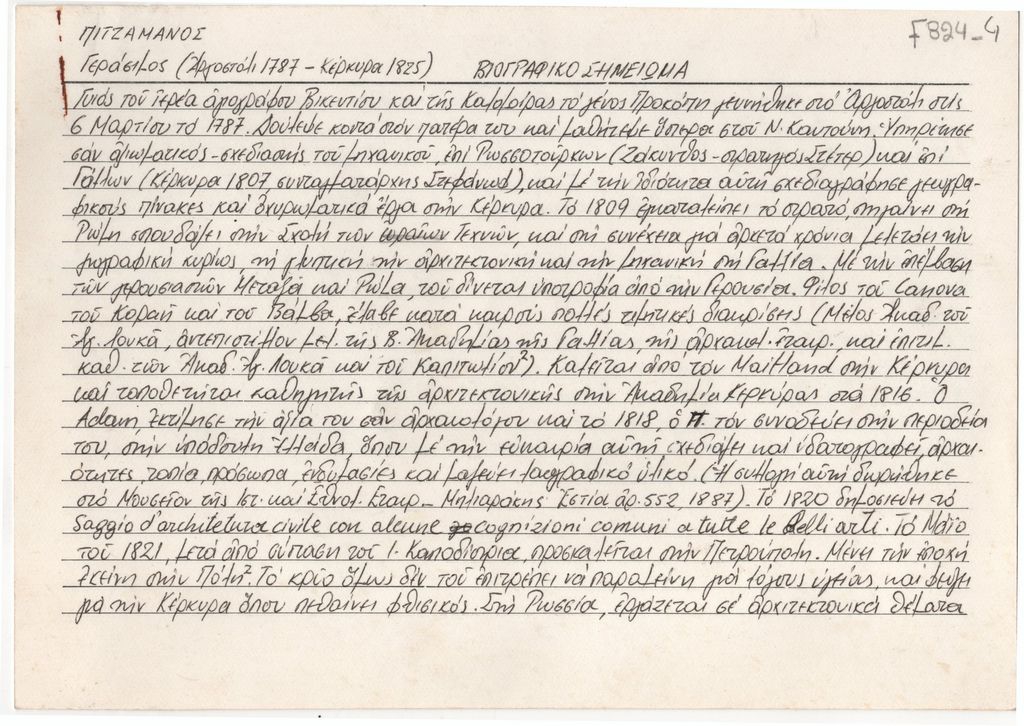 F824-4
ΠΙΤΖΑΜΑΝΟΣ
Γεράσιμος (Ἀργοστόλι 1787 – Κέρκυρα 1825) ΒΙΟΓΡΑΦΙΚΟ ΣΗΜΕΙΩΜΑ
Γυιός τοῦ ἱερέα ἁγιογράφου Βικεντίου καί τῆς Κασσάρας τό γένος Προκόπη γεννήθηκε στό Ἀργοστόλι στίς
6 Μαρτίου τό 1787. Δούλεψε κοντά στόν πατέρα του καί μαθήτεψε ὕστερα στοῦ Ν. Καντούνη. Ὑπηρέτησε
σάν ἀξιωματικός-σχεδιαστής τοῦ μηχανικοῦ, ἐπί Ρωσσοτούρκων (Ζάκυνθος-στρατηγός Στέτερ) καί ἐπί
Γάλλων (Κέρκυρα 1807, συνταγματάρχης Στεφάνωδ), καί μέ τήν ἰδιότητα αὐτή σχεδιαγράφησε γεωγρα-
φικούς πίνακες καί ὀχυρωματικά ἔργα στήν Κέρκυρα. Τό 1809 ἐγκαταλείπει τό στρατό, πηγαίνει στή
Ρώμη σπουδάζει στήν Σχολή τῶν ὡραίων Τεχνῶν, καί στή συνέχεια γιά ἀρκετά χρόνια μελετάει τήν
ζωγραφική κυρίως, τή γλυπτική τήν ἀρχιτεκτονική καί τήν μηχανική στή Γαλλία. Μέ τήν ἐπέμβαση
τῶν γερουσιαστῶν Μεταξᾶ καί Ρώμα, τοῦ δίνεται ὑποτροφία ἀπό τήν Γερουσία. Φίλος τοῦ Canova
τοῦ Κοραῆ καί τοῦ Βάλβα, ἔλαβε κατά καιρούς πολλές τιμητικές διακρίσεις (Μέλος Ἀκαδ. τοῦ
Ἁγ. Λουκᾶ, ἀντεπιστέλλον μέλ. τῆς Β. Ἀκαδημίας τῆς Γαλλίας, τῆς ἀρχαιολ. ἑταιρ., καί ἐπίτιμ.
καθ. τῶν Ἀκαδ. Ἁγ. Λουκᾶ καί τοῦ Καπιτωλίου²). Καλεῖται ἀπό τόν Maitland στήν Κέρκυρα
καί τοποθετεῖται καθηγητής τῆς ἀρχιτεκτονικῆς στήν Ἀκαδημία Κερκύρας στά 1816. Ὁ
Adam, ἐκτίμησε τήν ἀξία του σάν ἀρχαιολόγου καί τό 1818, ὁ Π. τόν συνοδεύει στήν περιοδεία
του, στήν ὑπόδουλη Ἑλλάδα, ὅπου μέ τήν εὐκαιρία αὐτή σχεδιάζει καί ὑδατογραφεῖ, ἀρχαι-
ότητες, τοπία, πρόσωπα, ἐνδυμασίες καί μαζεύει λαογραφικό ὑλικό. (Ἡ συλλογή αὐτή δωρήθηκε
στό Μουσεῖον τῆς Ἱστ. καί Ἐθνολ. Ἑταιρ. – Μηλιαράκης: Ἑστία ἀρ. 552, 1887). Τό 1820 δημοσιεύει τό
Saggio d'architetura civile con alcune cognizioni comuni a tutte le Belli arti. Τό Μάϊο
τοῦ 1821, μετά ἀπό σύσταση τοῦ Ι. Καποδίστρια, προσκαλεῖται στήν Πετρούπολη. Μένει τήν ἐποχή
ἐκείνη στήν Πόλη². Τό κρύο ὅμως δέν τοῦ ἐπιτρέπει νά παραμείνη γιά λόγους ὑγείας, καί φεύγει
γιά τήν Κέρκυρα ὅπου πεθαίνει φθισικός. Στή Ρωσσία, ἐργάζεται σέ ἀρχιτεκτονικά θέματα